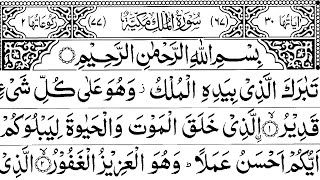 اٰیَاتُهَا ۳۰ (٦٧) سُوْرَةُ الْمُلْكِ مَكِّيَّةٌ (٧٧) رُكُوْعَاتُهَا ۲
بِسْمِ اللّٰهِ الرَّحْمٰنِ الرَّحِيْمِ
تَبٰرَكَ الَّذِيْ بِيَدِهِ الْمُلْكُ ز وَهُوَ عَلٰى كُلِّ شَيْءٍ
قَدِيْرُ ۙ﴿۱﴾ الَّذِيْ خَلَقَ الْمَوْتَ وَالْحَيٰوةَ لِيَبْلُوَكُمْ
اَيُّكُمْ اَحْسَنُ عَمَلًا ؕ وَهُوَ الْعَزِيْزُ الْغَفُوْرُ ۙ﴿۲﴾ الَّذِيْ